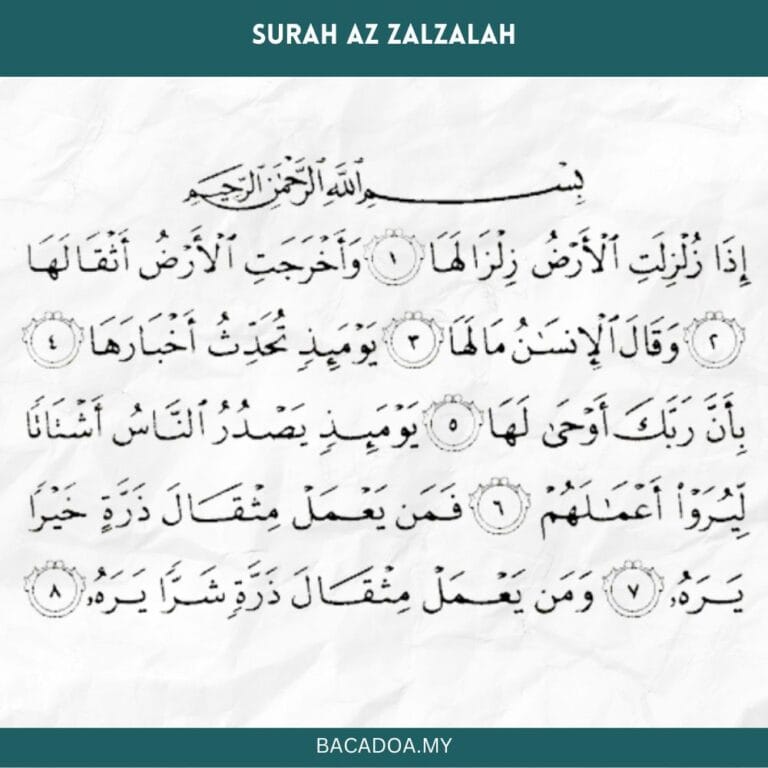 SURAH AZ ZALZALAH
بِسْمِ ٱللَّهِ ٱلرَّحْمَٰنِ ٱلرَّحِيمِ
إِذَا زُلْزِلَتِ ٱلْأَرْضُ زِلْزَالَهَا ١ وَأَخْرَجَتِ ٱلْأَرْضُ أَثْقَالَهَا
٢ وَقَالَ ٱلْإِنسَٰنُ مَا لَهَا ٣ يَوْمَئِذٍ تُحَدِّثُ أَخْبَارَهَا ٤
بِأَنَّ رَبَّكَ أَوْحَىٰ لَهَا ٥ يَوْمَئِذٍ يَصْدُرُ ٱلنَّاسُ أَشْتَاتًا
لِّيُرَوْا۟ أَعْمَٰلَهُمْ ٦ فَمَن يَعْمَلْ مِثْقَالَ ذَرَّةٍ خَيْرًا
يَرَهُۥ ٧ وَمَن يَعْمَلْ مِثْقَالَ ذَرَّةٍ شَرًّا يَرَهُۥ ٨
BACADOA.MY